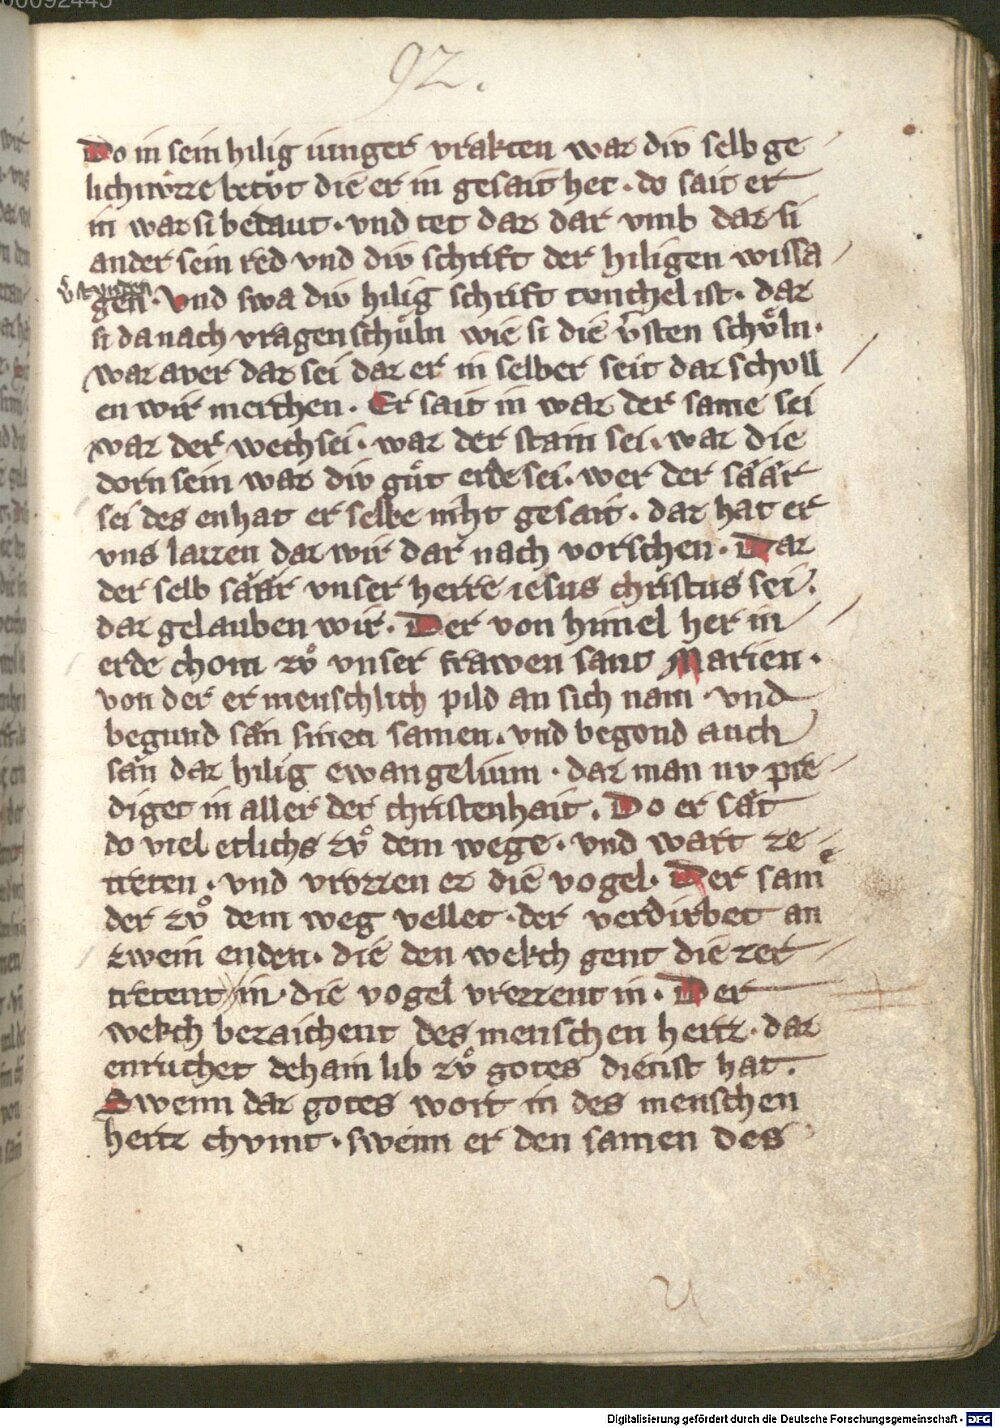 92.
Do in sein hilig iunger vrakten waz div selb ge
lichnv̊zze betv̊t die er in gesait het · do sait er
in waz si betaut · vnd tet daz dar vmb daz si
ander sein red vnd div schrift der hiligen wissa
v̾stunden
gen · Vnd swa div hilig schrift tunchel ist · daz
si da nach vragen schůln wie si die v̾sten schůln ·
waz aver daz sei daz er in selber seit daz schvll
en wir merchen · Er sait in waz der same sei
waz der wech sei · waz der stain sei · waz die
dorn sein waz div gůt erde sei · wer der säär
sei des enhat er selbe niht gesait · daz hat er
vns lazzen daz wir dar nach vorschen · Daz
der selb säär vnser herre iesus christus sei ·
daz gelauben wir · Der von himel her in
erde chom zv̊ vnser frawen sant Marien ·
von der er menschlich pild an sich nam · vnd
begund sän sinen samen · vnd begond auch
sän daz hilig ewangelium · daz man nv pre
diget in aller der christenhait · Do er sät
do viel etlichs zv̊ dem wege · vnd wart ze
treten · vnd vrazzen ez die vogel · Der sam
der zv̊ dem weg vellet · der verdirbet an
zwein enden · die den wekch gent die zer
tretent in · die vogel vrezzent in · Der
wekch bezaichent des menschen hertz · daz
enruchet dehain lib zv̊ gotes dienst hat ·
Swenn daz gotes wort in des menschen
hertz chvmt · swenn er den samen des
Digitalisierung gefördert durch die Deutsche Forschungsgemeinschaft - DFG